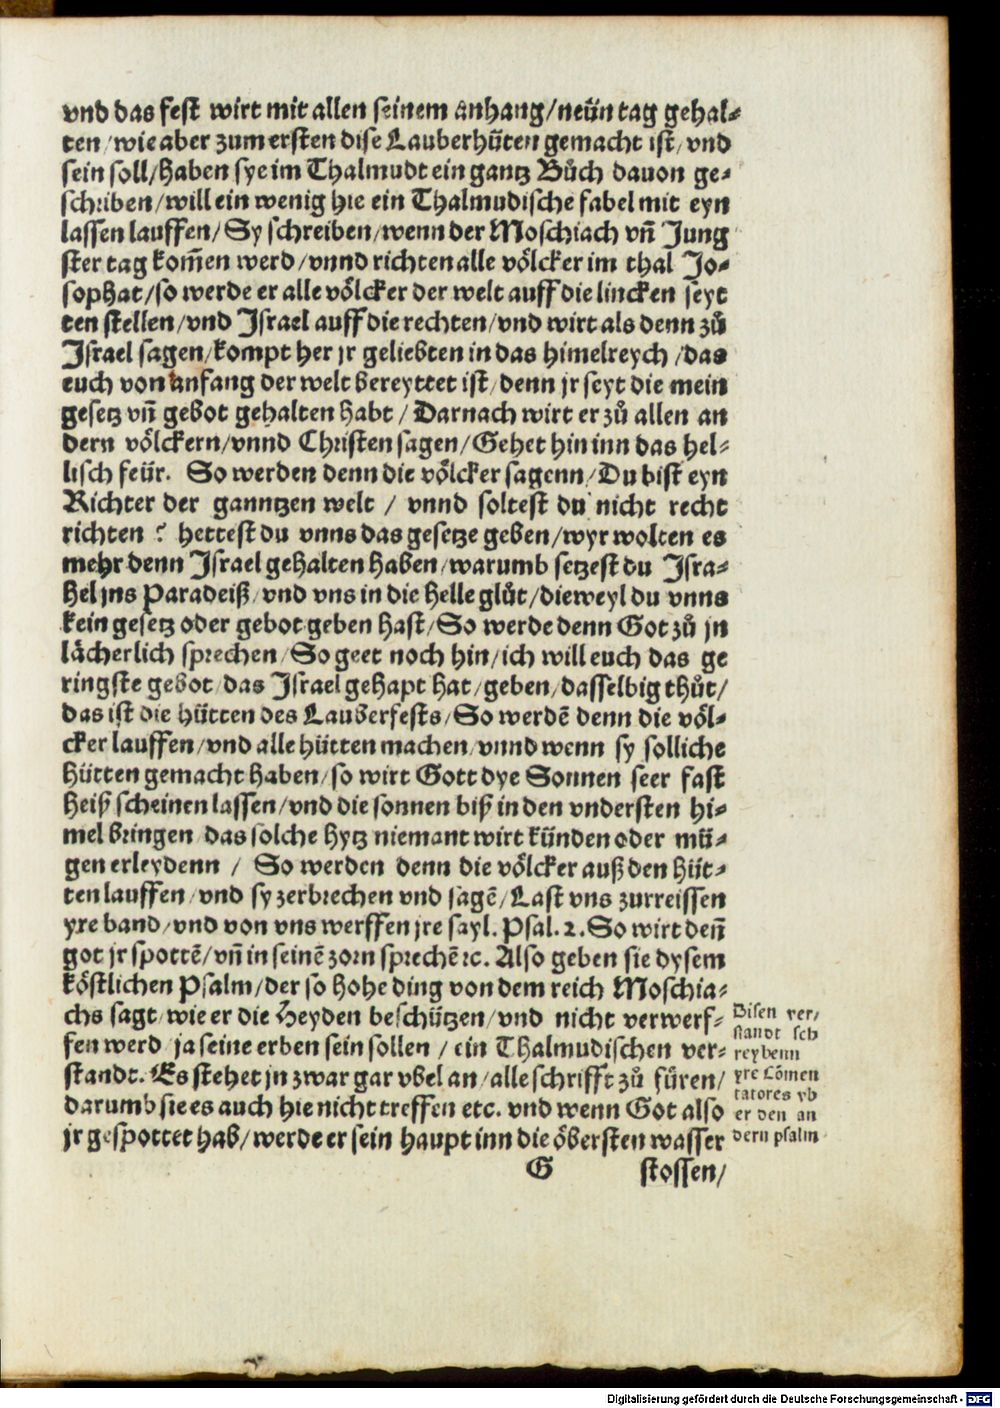 vnd das fest wirt mit allen seinem anhang/neün tag gehal⸗
ten/wie aber zum ersten dise Lauberhütten gemacht ist/vnd
sein soll/haben sye im Thalmudt ein gantz Bůch dauon ge⸗
schriben/will ein wenig hie ein Thalmudische fabel mit eyn
lassen lauffen/Sy schreiben/wenn der Moschiach vñ Jung
ster tag kom̃en werd/vnnd richten alle völcker im thal Jo⸗
sophat/so werde er alle völcker der welt auff die lincken seyt
ten stellen/vnd Israel auff die rechten/vnd wirt als denn zů
Israel sagen/kompt her jr geliebten in das himelreych/das
euch von anfang der welt bereyttet ist/denn jr seyt die mein
gesetz vñ gebot gehalten habt/Darnach wirt er zů allen an
dern völckern/vnnd Christen sagen/Gehet hin inn das hel⸗
lisch feür. So werden denn die völcker sagenn/Du bist eyn
Richter der ganntzen welt/vnnd soltest du nicht recht
richten? hettest du vnns das gesetze geben/wyr wolten es
mehr denn Israel gehalten haben/warumb setzest du Isra⸗
hel jns Paradeiß/vnd vns in die helle glůt/dieweyl du vnns
kein gesetz oder gebot geben hast/So werde denn Got zů jn
lächerlich sprechen/So geet noch hin/ich will euch das ge
ringste gebot/das Israel gehapt hat/geben/dasselbig thůt/
das ist die hütten des Lauberfests/So werdē denn die völ⸗
cker lauffen/vnd alle hütten machen/vnnd wenn sy solliche
hütten gemacht haben/so wirt Gott dye Sonnen seer fast
heiß scheinen lassen/vnd die sonnen biß in den vndersten hi⸗
mel bringen/das solche hytz niemant wirt künden oder mü⸗
gen erleydenn/So werden denn die völcker auß den hüt⸗
ten lauffen/vnd sy zerbrechen vnd sagē/Last vns zurreissen
yre band/vnd von vns werffen jre sayl. Psal. 2. So wirt deñ
got jr spottē/vñ in seinē zorn sprechē ꝛc. Also geben sie dysem
köstlichen Psalm/der so hohe ding von dem reich Moschia⸗
chs sagt/wie er die Heyden beschützen/vnd nicht verwerf⸗
fen werd/ja seine erben sein sollen/ein Thalmudischen ver⸗
standt. Es stehet jn zwar gar vbel an/alle schrifft zů füren/
darumb sie es auch hie nicht treffen etc. vnd wenn Got also
jr gespottet hab/werde er sein haupt inn die öbersten wasser
G stossen/
Disen ver/
standt sch
reybenn
yre Cōmen
tatores vb
er den an
dern psalm
Digitalisierung gefördert durch die Deutsche Forschungsgemeinschaft - DFG